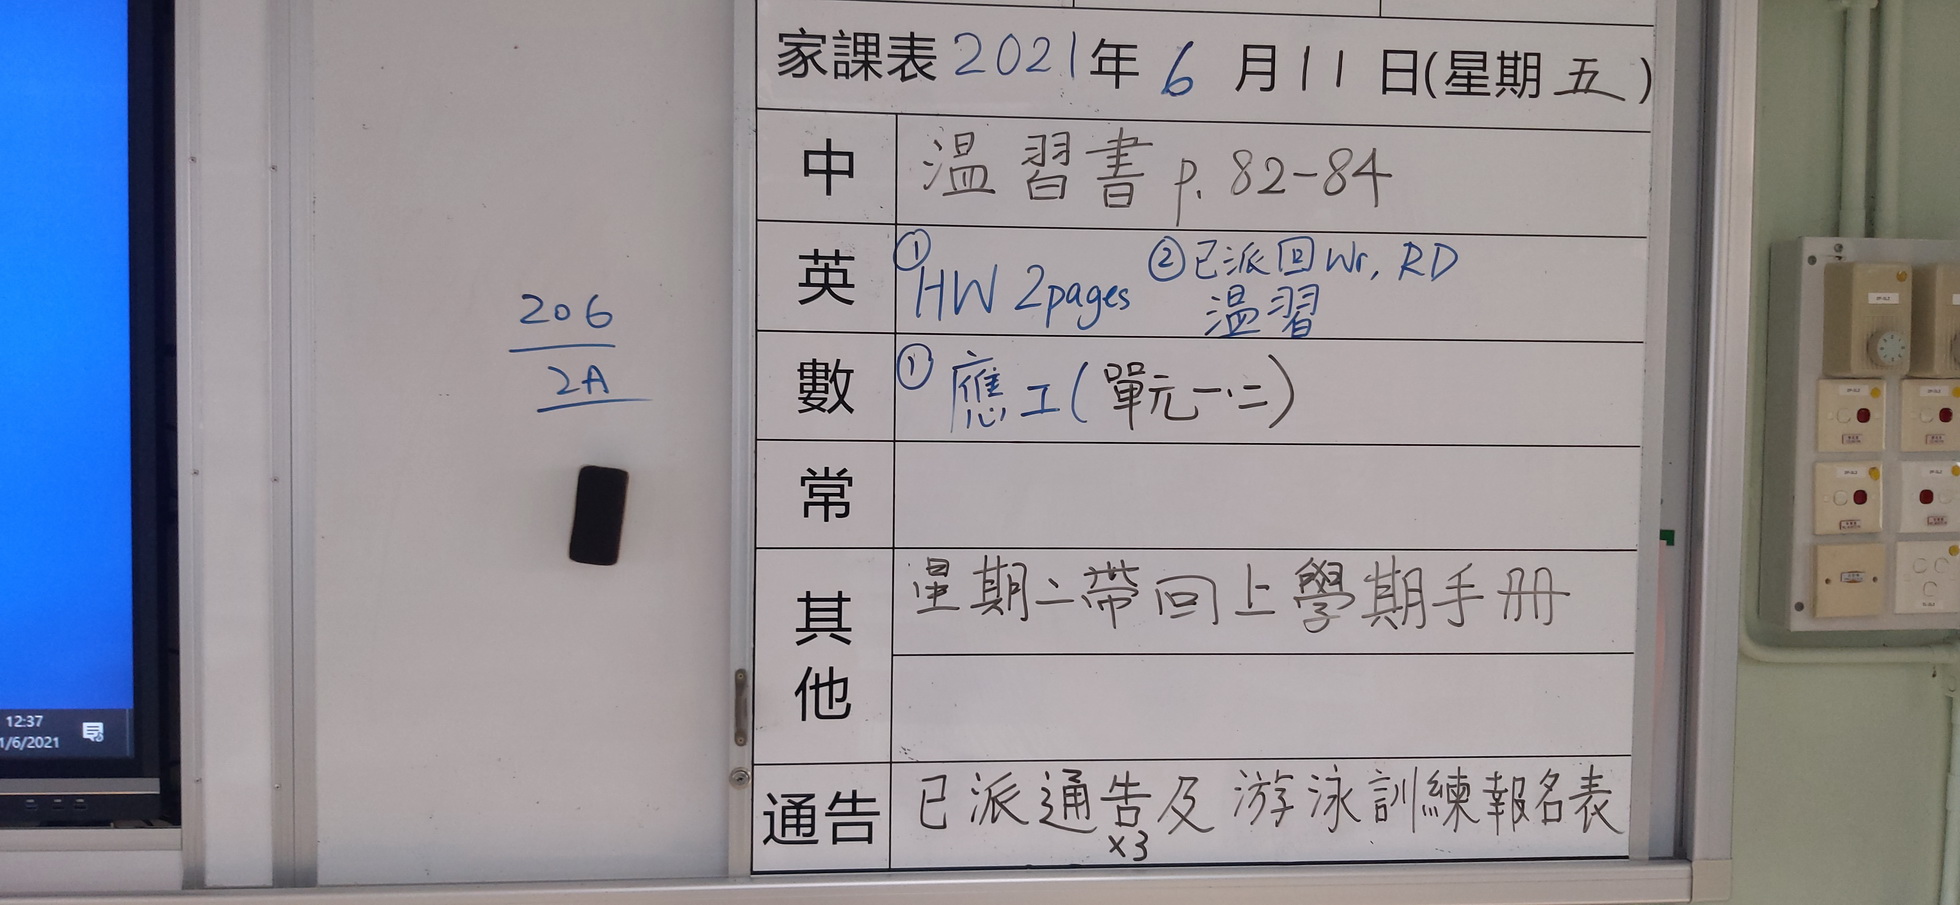 家課表 2021年 6 月 11 日(星期 五 )
中 溫習書 p. 82-84
英 ① HW 2pages ② 已派回 Wr, RD
溫習
數 ① 應工(單元一.二)
常
其他 星期二帶回上學期手冊
通告 已派通告及游泳訓練報名表
x3
206
2A
12:37
1/6/2021